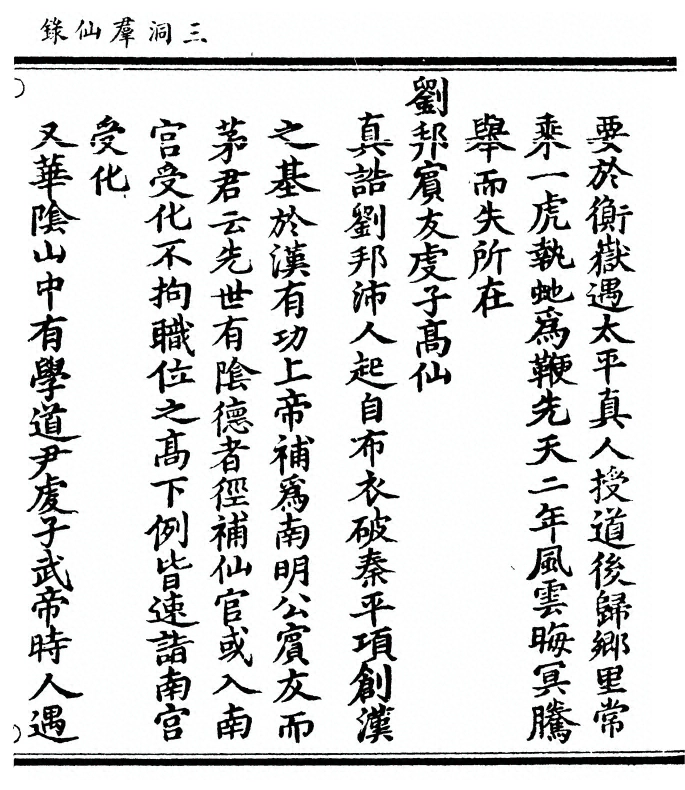 三洞羣仙錄
要於衡嶽遇太平真人授道後歸鄉里常
乘一虎執虵爲鞭先天二年風雲晦冥騰
舉而失所在
劉邦賓友虔子高仙
真誥劉邦沛人起自布衣破秦平項創漢
之基於漢有功上帝補爲南明公賓友而
茅君云先世有陰德者徑補仙官或入南
宮受化不拘職位之高下例皆速詣南宮
受化
又華陰山中有學道尹虔子武帝時人遇